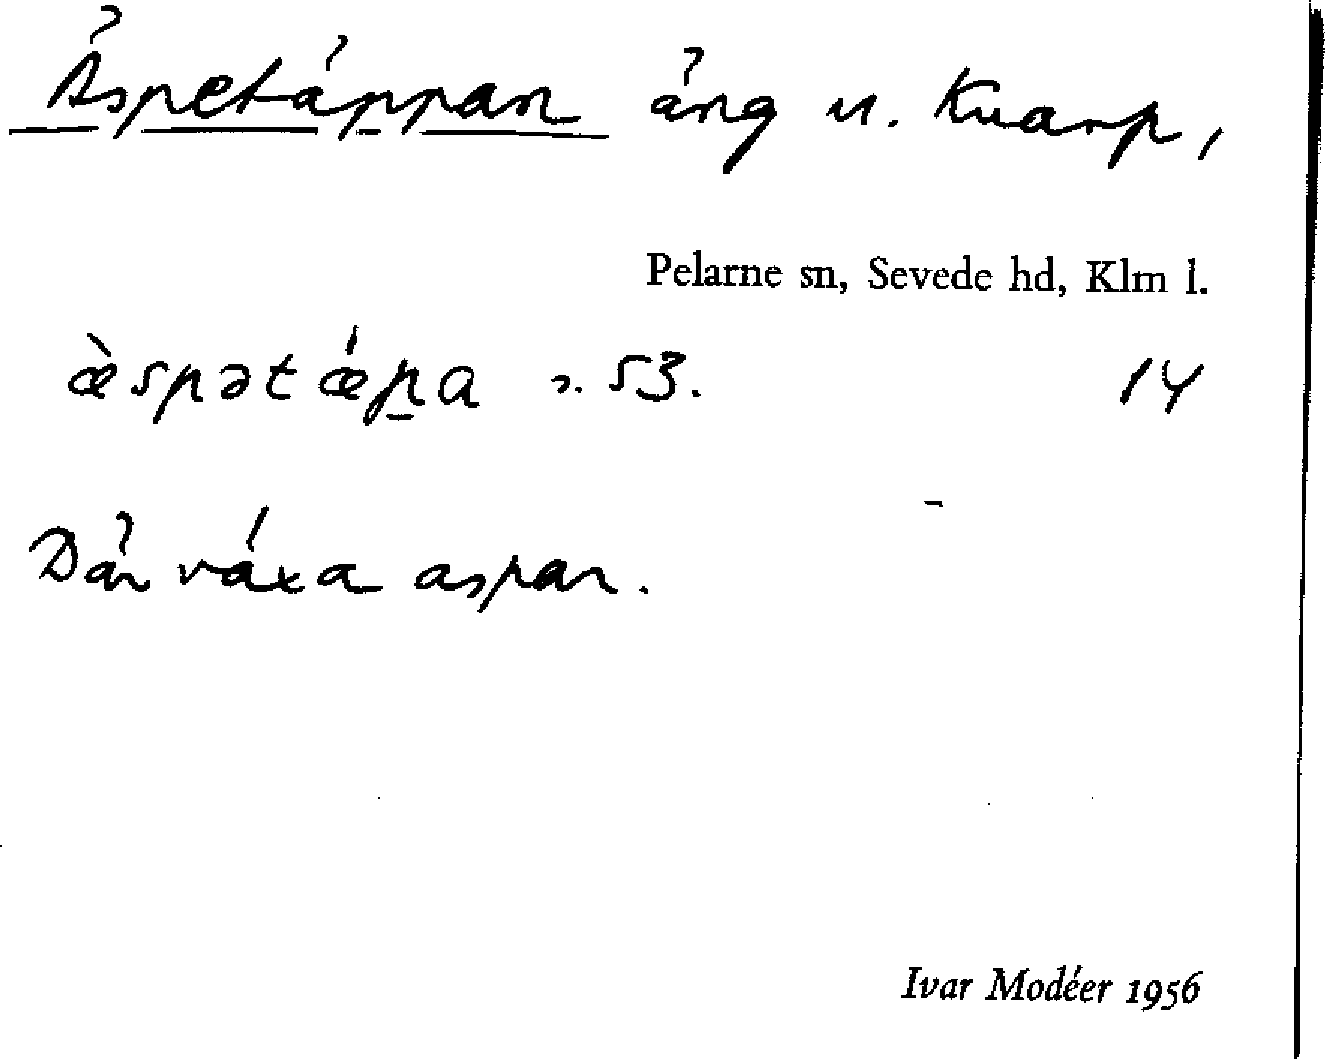 Äspetäppan äng u. Kvarp,
Pelarne sn, Sevede hd, Klm l.
æ̀spətǽp̱a s. 53. 14
Där växa aspar.
Ivar Modéer 1956